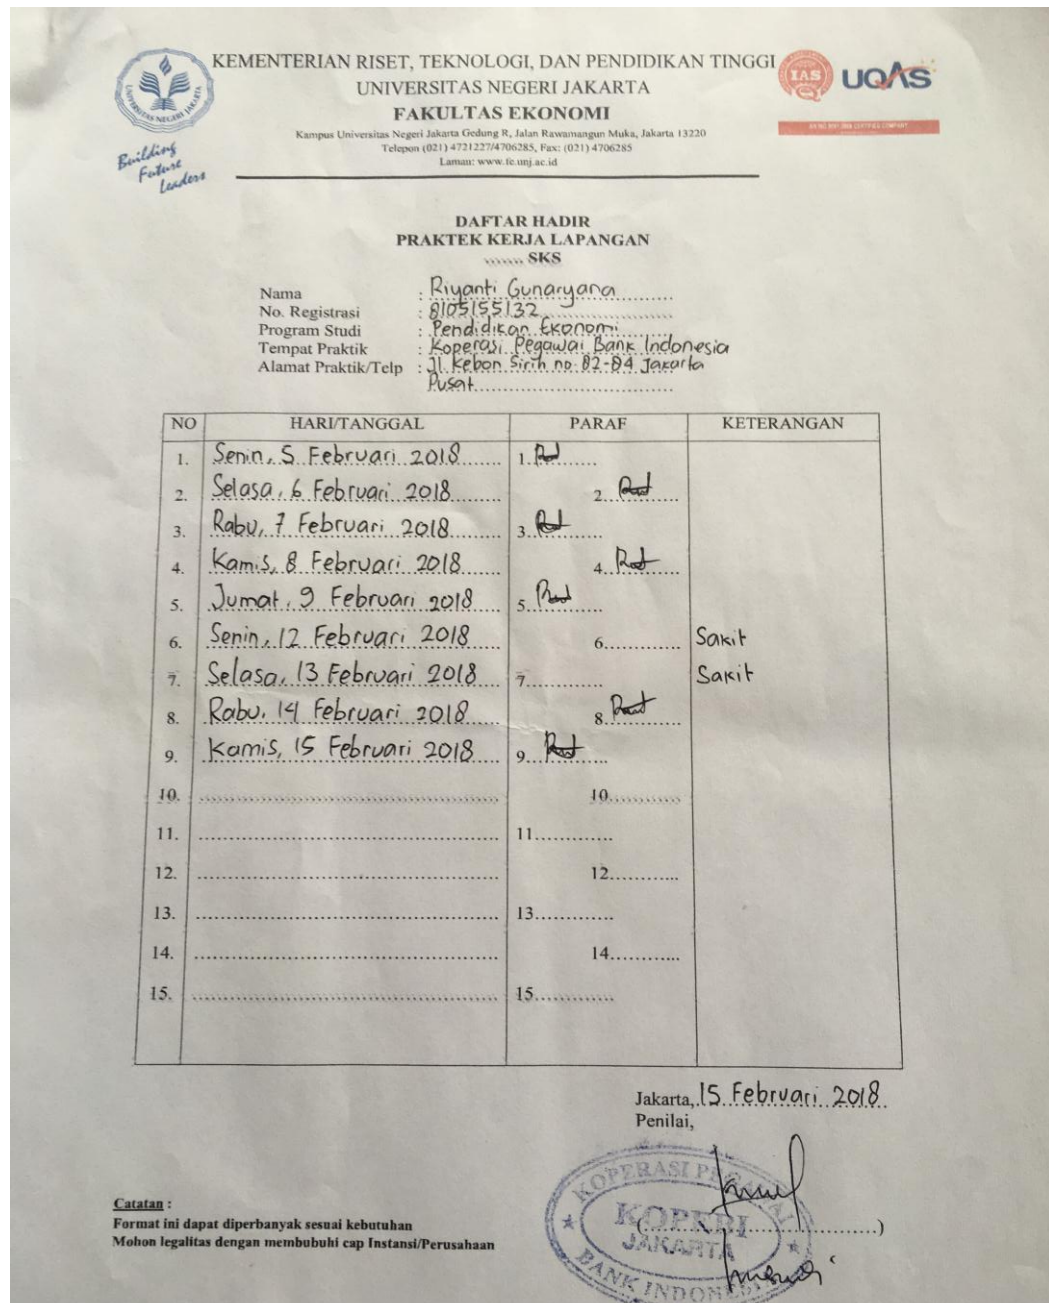 KEMENTERIAN RISET, TEKNOLOGI, DAN PENDIDIKAN TINGGI
UNIVERSITAS NEGERI JAKARTA
FAKULTAS EKONOMI
Kampus Universitas Negeri Jakarta Gedung R, Jalan Rawamangun Muka, Jakarta 13220
Telepon (021) 4721227/4706285, Fax: (021) 4706285
Laman: www.fe.unj.ac.id
UNIVERSITAS NEGERI JAKARTA
Building
Future
Leaders
IAS
UQAS
DAFTAR HADIR
PRAKTEK KERJA LAPANGAN
....... SKS
Nama : Riyanti Gunaryana
No. Registrasi : 8105155132
Program Studi : Pendidikan Ekonomi
Tempat Praktik : Koperasi Pegawai Bank Indonesia
Alamat Praktik/Telp : Jl. Kebon Sirih no. 82-84 Jakarta
Pusat
NO HARI/TANGGAL PARAF KETERANGAN
1. Senin, 5 Februari 2018 1.
2. Selasa, 6 Februari 2018 2.
3. Rabu, 7 Februari 2018 3.
4. Kamis, 8 Februari 2018 4.
5. Jumat, 9 Februari 2018 5.
6. Senin, 12 Februari 2018 6. Sakit
7. Selasa, 13 Februari 2018 7. Sakit
8. Rabu, 14 Februari 2018 8.
9. Kamis, 15 Februari 2018 9.
10. 10.
11. 11.
12. 12.
13. 13.
14. 14.
15. 15.
Jakarta, 15 Februari 2018
Penilai,
KOPERASI PEGAWAI
KOPEBI
JAKARTA
BANK INDONESIA
Catatan :
Format ini dapat diperbanyak sesuai kebutuhan
Mohon legalitas dengan membubuhi cap Instansi/Perusahaan